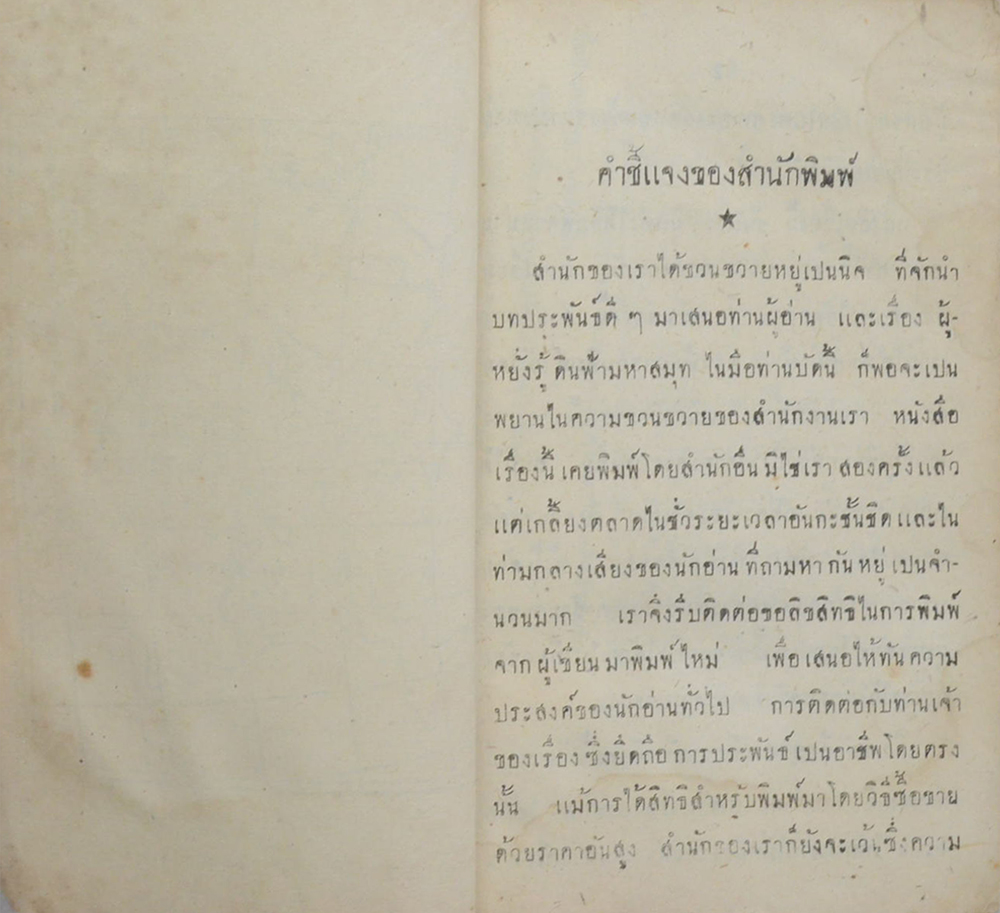 คำชี้แจงของสำนักพิมพ์
★
สำนักของเราได้ขวนขวายหยู่เปนนิจ ที่จักนำ
บทประพันธ์ดี ๆ มาเสนอท่านผู้อ่าน และเรื่อง ผู้-
หยั่งรู้ ดินฟ้ามหาสมุท ในมือท่านบัดนี้ ก็พอจะเปน
พยานในความขวนขวายของสำนักงานเรา หนังสือ
เรื่องนี้ เคยพิมพ์โดยสำนักอื่น มิไช่เรา สองครั้งแล้ว
แต่เกลี้ยงตลาดในชั่วระยะเวลาอันกะชั้นชิด และใน
ท่ามกลางเสียงของนักอ่าน ที่ถามหา กัน หยู่ เปนจำ-
นวนมาก เราจึ่งรีบติดต่อขอลิขสิทธิในการพิมพ์
จาก ผู้เขียน มาพิมพ์ ไหม่ เพื่อ เสนอให้ทัน ความ
ประสงค์ของนักอ่านทั่วไป การติดต่อกับท่านเจ้า
ของเรื่อง ซึ่งยึดถือ การประพันธ์ เปนอาชีพโดยตรง
นั้น แม้การได้สิทธิสำหรับพิมพ์มาโดยวิธีซื้อขาย
ด้วยราคาอันสูง สำนักของเราก็ยังจะเว้นซึ่งความ